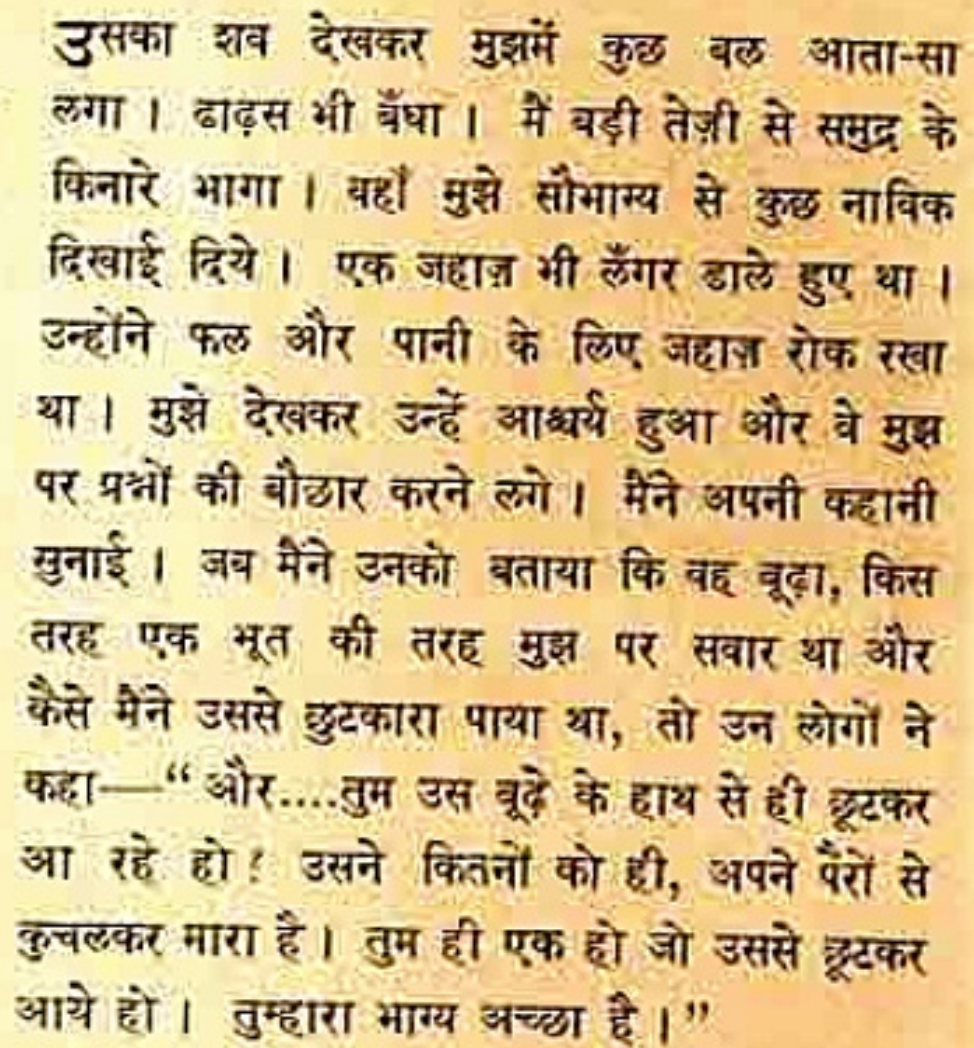 उसका शव देखकर मुझमें कुछ बल आता-सा
लगा । ढाढ़स भी बँधा । मैं बड़ी तेज़ी से समुद्र के
किनारे भागा । वहाँ मुझे सौभाग्य से कुछ नाविक
दिखाई दिये । एक जहाज़ भी लँगर डाले हुए था ।
उन्होंने फल और पानी के लिए जहाज़ रोक रखा
था । मुझे देखकर उन्हें आश्चर्य हुआ और वे मुझ
पर प्रश्नों की बौछार करने लगे । मैंने अपनी कहानी
सुनाई । जब मैंने उनको बताया कि वह बूढ़ा, किस
तरह एक भूत की तरह मुझ पर सवार था और
कैसे मैंने उससे छुटकारा पाया था, तो उन लोगों ने
कहा—“और....तुम उस बूढ़े के हाथ से ही छूटकर
आ रहे हो ! उसने कितनों को ही, अपने पैरों से
कुचलकर मारा है । तुम ही एक हो जो उससे छूटकर
आये हो । तुम्हारा भाग्य अच्छा है ।”